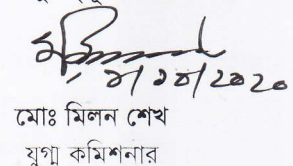 ৮/১০/২০২০
মোঃ মিলন শেখ
যুগ্ম কমিশনার